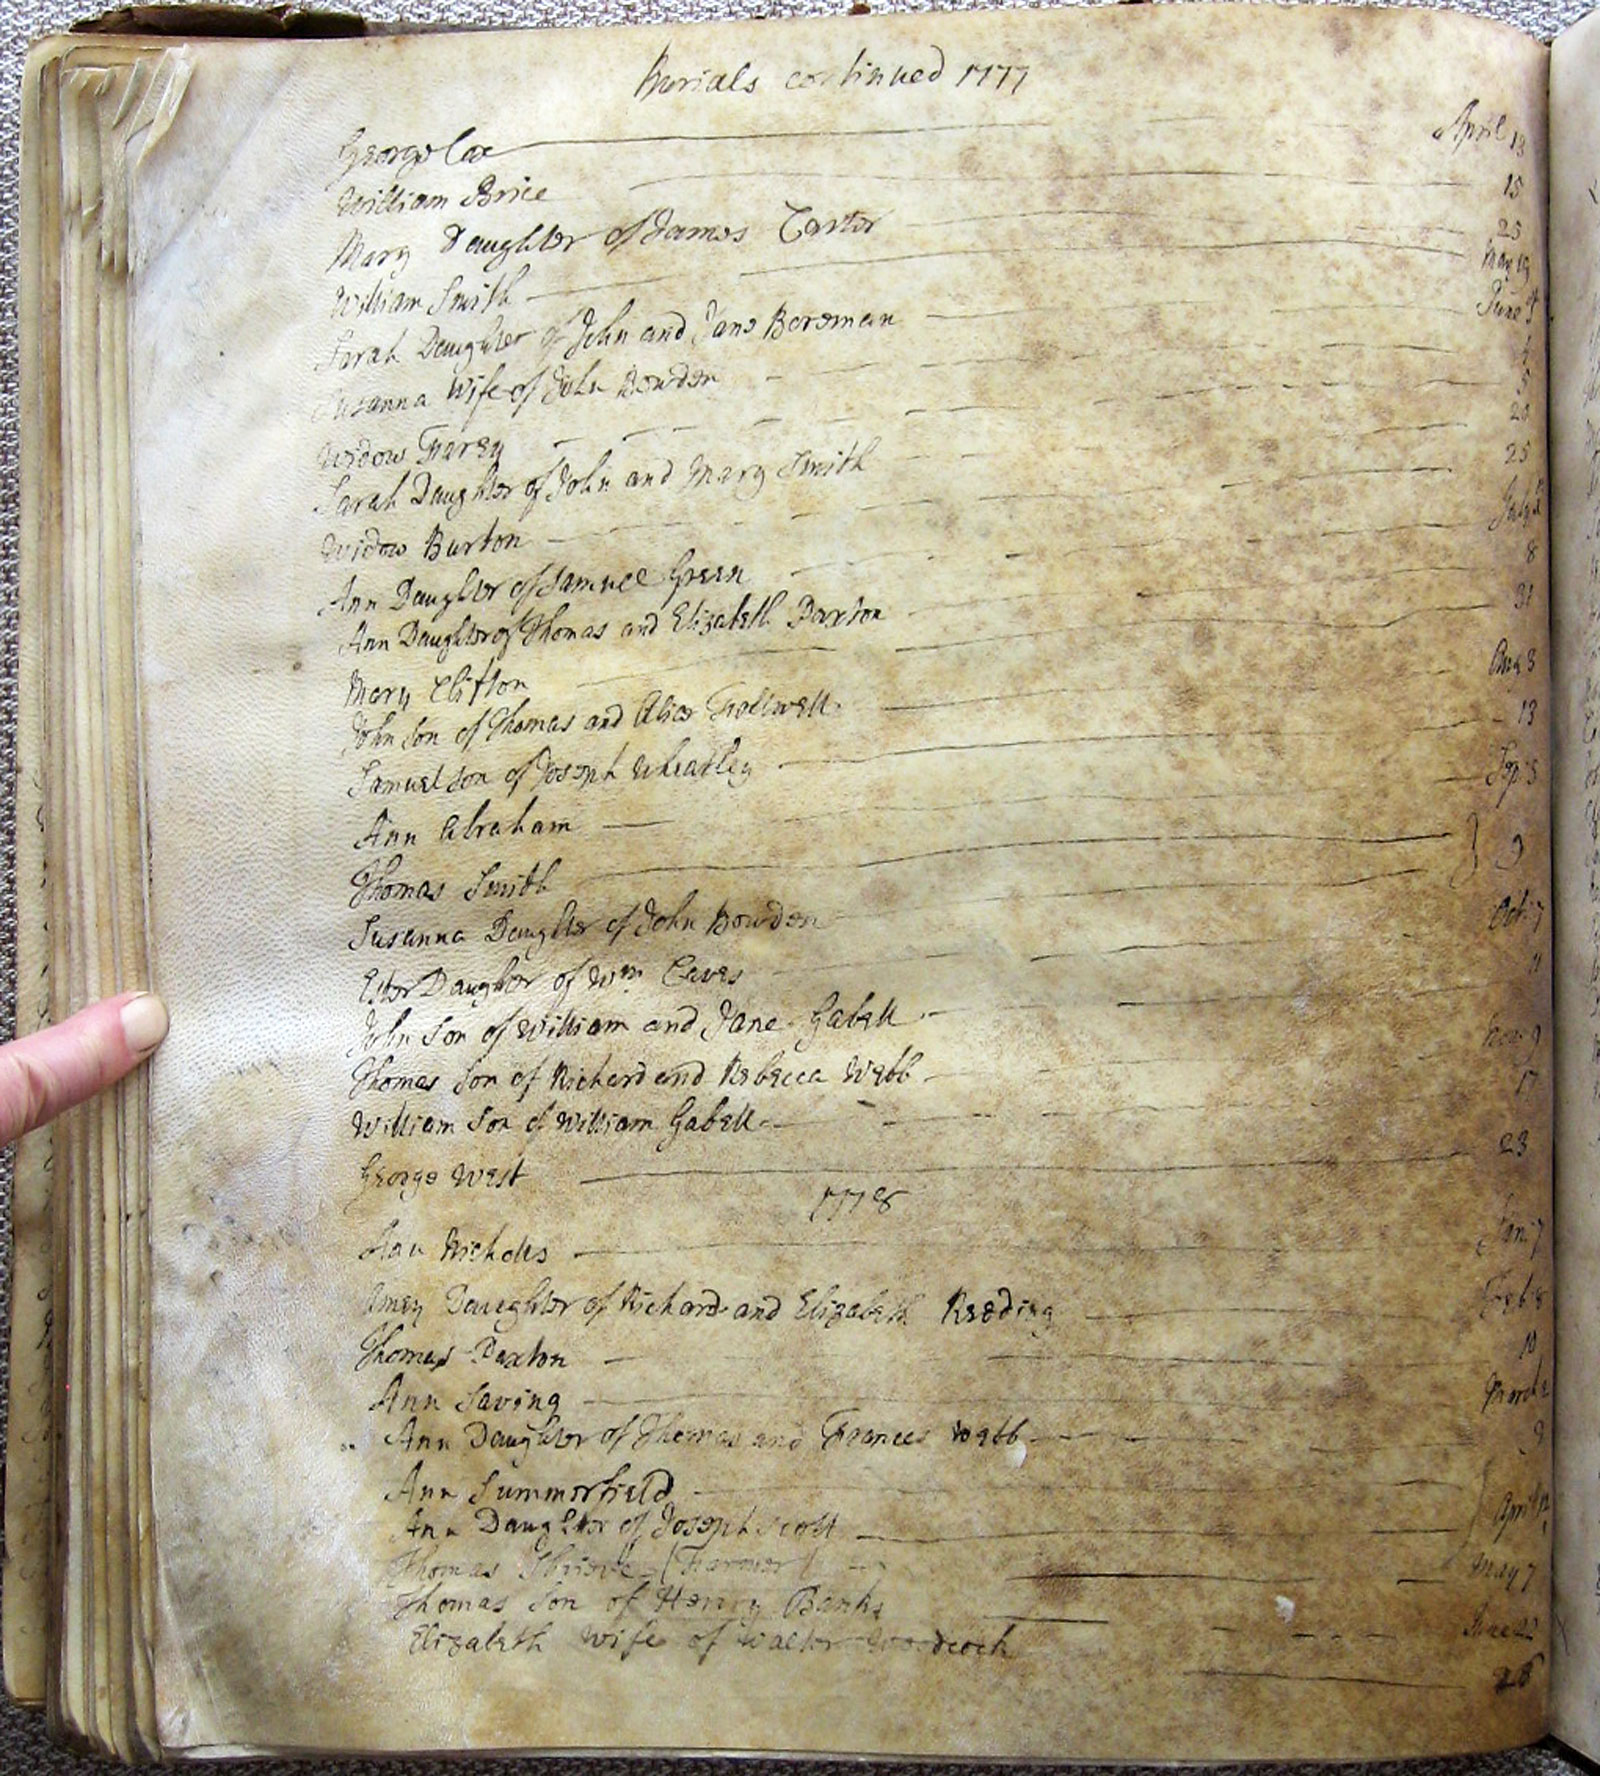 Burials continued 1777
George Cox April 13
William Brice 15
Mary Daughter of James Carter 25
William Smith May 19
Sarah Daughter of John and Jane Boreman June
Susanna Wife of John Bowden 4
Widow Farey 5
Sarah Daughter of John and Mary Smith 20
Widow Burton 25
Ann Daughter of Samuel Green July
Ann Daughter of Thomas and Elizabeth Paxton 8
Mary Clifton 31
John Son of Thomas and Alice Aug 3
Samuel Son of Joseph Wheatley 13
Ann Abraham Sep 5
Thomas Smith
Susanna Daughter of John Bowden 9
Ester Daughter of Wm Eaves Oct 7
John Son of William and Jane Gabell 11
Thomas Son of Richard and Rebecca Webb Nov 9
William Son of William Gabell 17
George West 23
1778
Nicholes Jan 7
Amey Daughter of Richard and Elizabeth Reeding Feb 8
Thomas Paxton 10
Ann Saving March 2
Ann Daughter of Thomas and Frances Webb 9
Ann Summerfield
Ann Daughter of Joseph Scott April 12
Thomas (Farmer) May 7
Thomas Son of Henry Banks June 22
Elizabeth Wife of Walter Woodcock 26